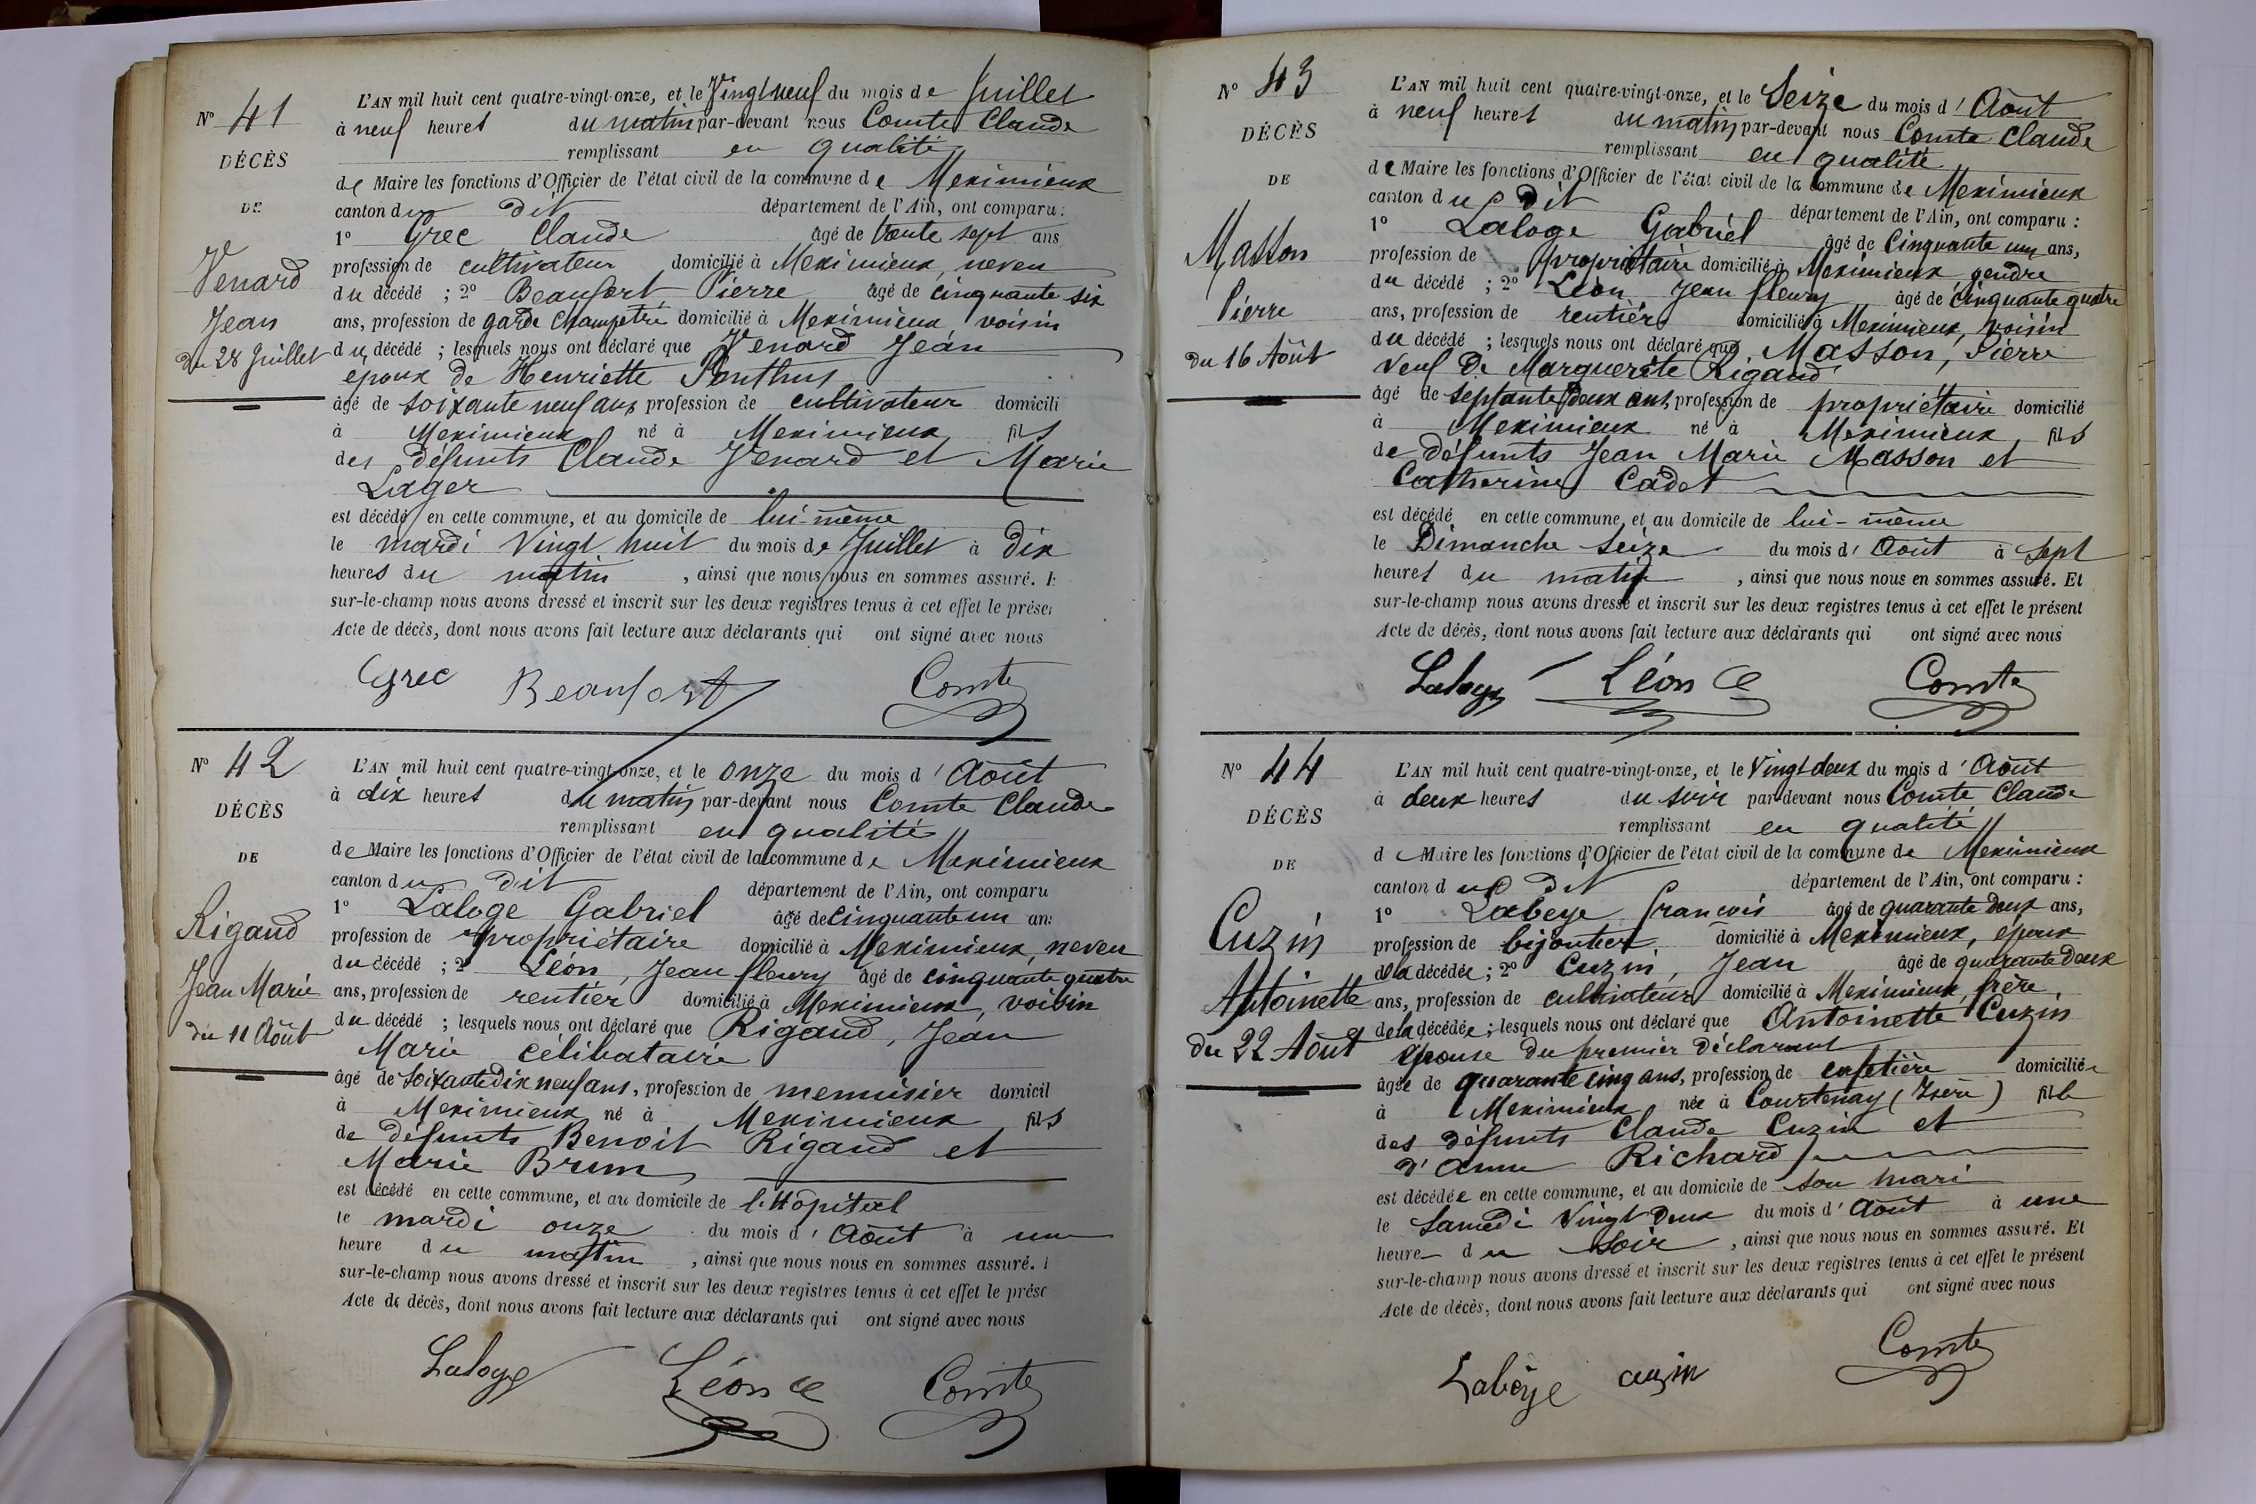 N° 41
DÉCÈS
DE
Venard
Jean
du 28 Juillet
L'AN mil huit cent quatre-vingt-onze, et le Vingt neuf du mois de Juillet
à neuf heures du matin par-devant nous Comte Claude
remplissant en qualité
de Maire les fonctions d'Officier de l'état civil de la commune de Meximieux
canton du dit département de l'Ain, ont comparu :
1° Grec Claude âgé de trente sept ans
profession de cultivateur domicilié à Meximieux, neveu
du décédé ; 2° Beaufort Pierre âgé de cinquante six
ans, profession de garde champêtre domicilié à Meximieux, voisin
du décédé ; lesquels nous ont déclaré que Venard Jean
époux de Henriette Ponthus
âgé de soixante neuf ans profession de cultivateur domicili
à Meximieux né à Meximieux fils
des défunts Claude Venard et Marie
Lager
est décédé en cette commune, et au domicile de lui-même
le mardi vingt huit du mois de Juillet à dix
heures du matin, ainsi que nous nous en sommes assuré. E
sur-le-champ nous avons dressé et inscrit sur les deux registres tenus à cet effet le prése
Acte de décès, dont nous avons fait lecture aux déclarants qui ont signé avec nous
Grec Beaufort Comte
N° 42
DÉCÈS
DE
Rigaud
Jean Marie
du 11 Août
L'AN mil huit cent quatre-vingt-onze, et le onze du mois d'Août
à dix heures du matin par-devant nous Comte Claude
remplissant en qualité
de Maire les fonctions d'Officier de l'état civil de la commune de Meximieux
canton du dit département de l'Ain, ont comparu
1° Laloge Gabriel âgé de cinquante un ans
profession de propriétaire domicilié à Meximieux, neveu
du décédé ; 2° Léon, Jean fleury âgé de cinquante quatre
ans, profession de rentier domicilié à Meximieux, voisin
du décédé ; lesquels nous ont déclaré que Rigaud, Jean
Marie célibataire
âgé de soixante dix neuf ans, profession de menuisier domicil
à Meximieux né à Meximieux fils
de défunts Benoit Rigaud et
Marie Brun
est décédé en cette commune, et au domicile de l'Hôpital
le mardi onze du mois d'Août à une
heure du matin, ainsi que nous nous en sommes assuré.
sur-le-champ nous avons dressé et inscrit sur les deux registres tenus à cet effet le prése
Acte de décès, dont nous avons fait lecture aux déclarants qui ont signé avec nous
Laloge Léon Comte
N° 43
DÉCÈS
DE
Masson
Pierre
du 16 Août
L'AN mil huit cent quatre-vingt-onze, et le Seize du mois d'Août
à neuf heures du matin par-devant nous Comte Claude
remplissant en qualité
de Maire les fonctions d'Officier de l'état civil de la commune de Meximieux
canton du dit département de l'Ain, ont comparu :
1° Laloge Gabriel âgé de Cinquante un ans,
profession de propriétaire domicilié à Meximieux gendre
du décédé ; 2° Léon Jean fleury âgé de cinquante quatre
ans, profession de rentier domicilié à Meximieux, voisin
du décédé ; lesquels nous ont déclaré que Masson, Pierre
veuf de Marguerite Rigaud
âgé de septante deux ans, profession de propriétaire domicilié
à Meximieux né à Meximieux, fils
de défunts Jean Marie Masson et
Catherine Cadet
est décédé en cette commune, et au domicile de lui-même
le Dimanche seize du mois d'Août à sept
heures du matin, ainsi que nous nous en sommes assuré. Et
sur-le-champ nous avons dressé et inscrit sur les deux registres tenus à cet effet le présent
Acte de décès, dont nous avons fait lecture aux déclarants qui ont signé avec nous
Laloge Léon Comte
N° 44
DÉCÈS
DE
Cuzin
Antoinette
du 22 Août
L'AN mil huit cent quatre-vingt-onze, et le Vingt deux du mois d'Août
à deux heures du soir par-devant nous Comte Claude
remplissant en qualité
de Maire les fonctions d'Officier de l'état civil de la commune de Meximieux
canton du dit département de l'Ain, ont comparu :
1° Labeye françois âgé de quarante deux ans,
profession de bijoutier domicilié à Meximieux, époux
de la décédée ; 2° Cuzin, Jean âgé de quarante deux
ans, profession de cultivateur domicilié à Meximieux frère
de la décédée ; lesquels nous ont déclaré que Antoinette Cuzin
épouse du premier déclarant
âgée de quarante cinq ans, profession de cafetière domiciliée
à Meximieux née à Courtenay (Isère) fille
des défunts Claude Cuzin et
d'Anne Richard
est décédée en cette commune, et au domicile de son mari
le Samedi vingt deux du mois d'Août à une
heure du soir, ainsi que nous nous en sommes assuré. Et
sur-le-champ nous avons dressé et inscrit sur les deux registres tenus à cet effet le présent
Acte de décès, dont nous avons fait lecture aux déclarants qui ont signé avec nous
Labeye cuzin Comte